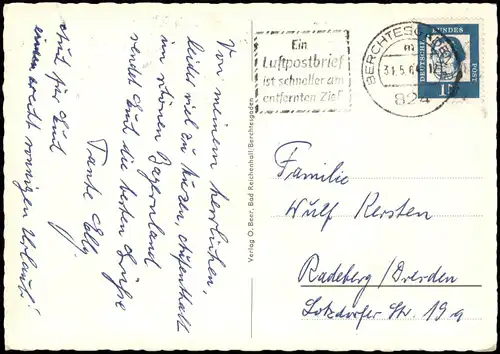 Von meinem herrlichen,
leider viel zu kurzen, Aufenthalt
im schönen Bayernland
sendet Euch die besten Grüße
Tante Elly.
Auch für Euch
einen recht sonnigen Urlaub!
Ein
Luftpostbrief
ist schneller am
entfernten Ziel
BERCHTESGADEN
m
31.5.6
824
DEUTSCHE BUNDESPOST
Verlag O. Beer, Bad Reichenhall/Berchtesgaden
Familie
Wulf Kersten
Radeberg/Dresden
Lotzdorfer Str. 19a